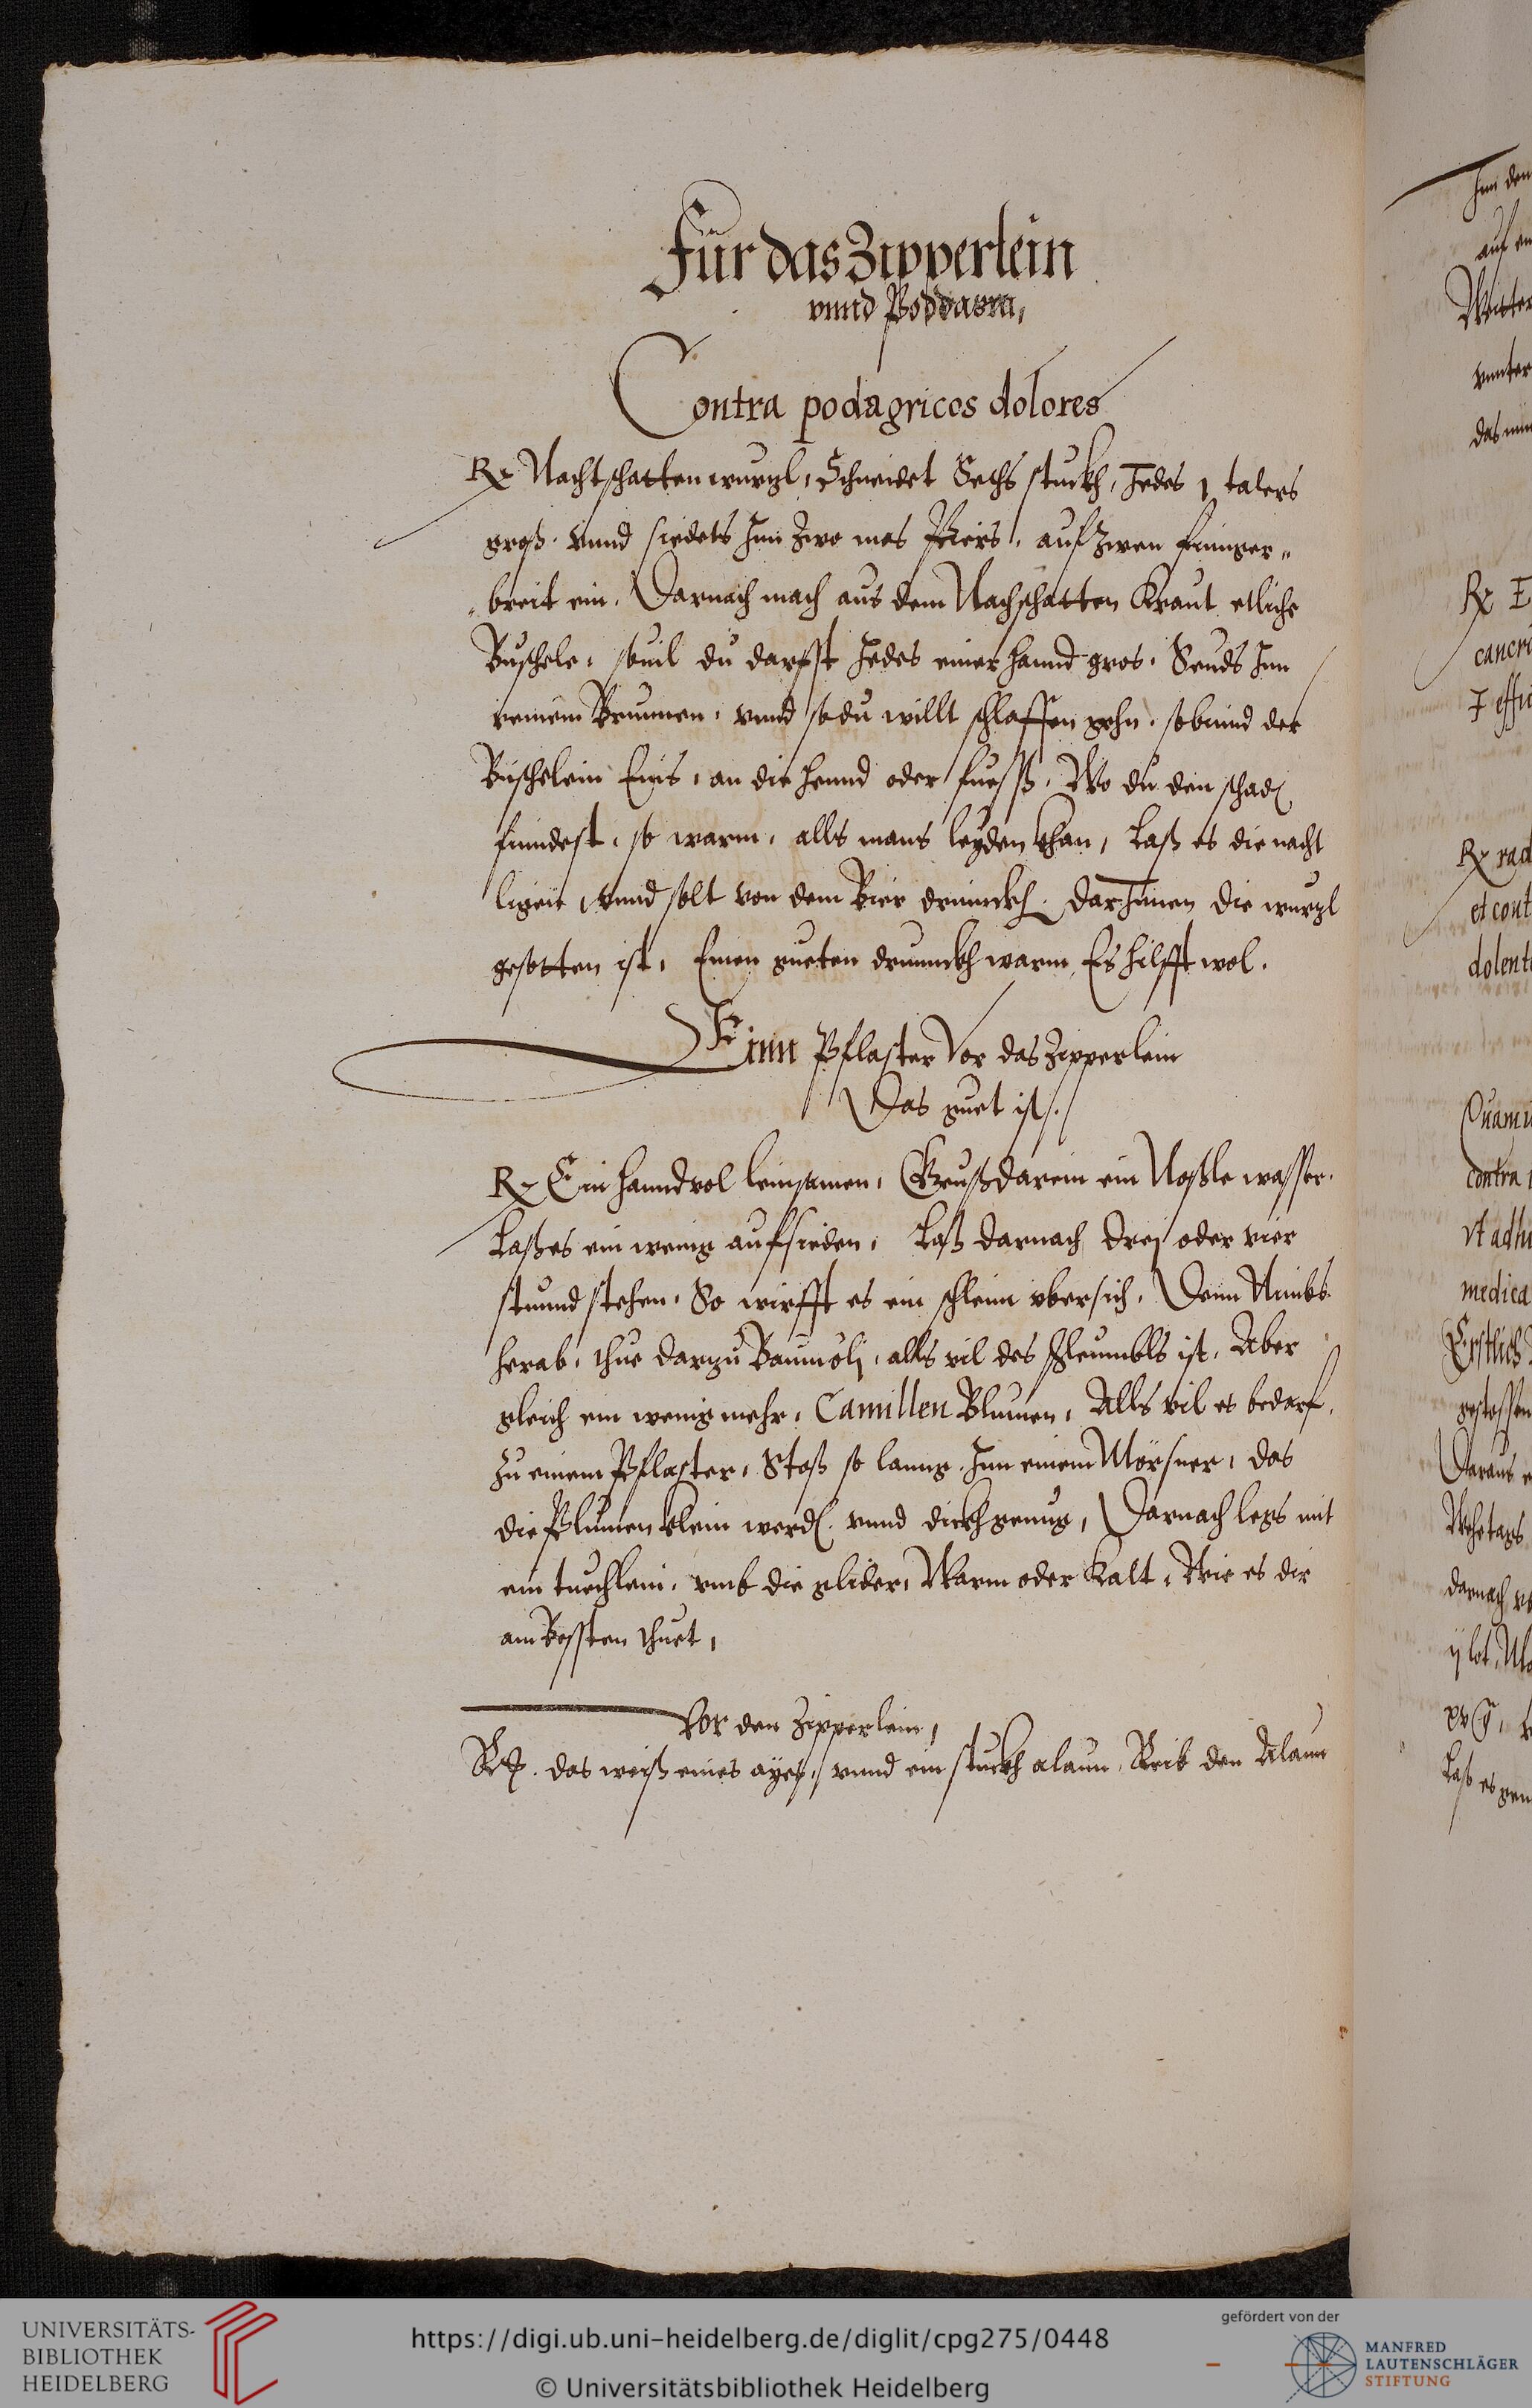 Für das Zipperlein
vnnd Poddagra,
Contra podagricos dolores
Rx Nachtschatten wurzl, Schneidet Sechs stuckh, Jedes 1 talers
groß. vnnd siedets Jnn zwo mas Biers, auf zwen finnger„
„breit ein. Darnach mach aus dem Nachschatten Kraut etliche
Buschele, souil du darffst Jedes einer hannd gros, Seuds Jnn
reinem Brunnen, vnnd so du willt schlaffen gehn, so bind der
Büschelein Eins, an die hennd oder fuesß, Wo du den schad[en]
finndest, so warm, alls mans leyden khan, Laß es die nacht
ligen, vnnd solt von dem Bier drinnckh[en], dar Jnnen die wurzl
gesotten ist, Einen gueten drunnckh warm, Es hilfft wol.
Einn Pflaster Vor das Zipperlein
Das guet ist.
Rx Ein hanndvol leinsamen, Geuß darein ein Noßle wasser.
Laß es ein wenig aufsieden, Laß darnach drej oder vier
stuund stehen, So wirfft es ein schleim vbersich, Denn Nimbs
herab, thue darzu Baumölj, alls vil des schleimbls ist, Aber
gleich ein wenig mehr, Camillen Blumen, Alls vil es bedarf,
zu einem Pflaster, Stoß so lanng, Jnn einem Mörsner, das
die Blumen klein werd[en] vnnd dickh genug, Darnach legs mit
ein tuechlein, vmb die glider, Warm oder Kalt, Wie es dir
am Bessten thuet,
Vor den Zipperlein,
Rx. das weiß eines ayes, vnnd ein stuckh alaun, Reib den Alaun
Jnn den
auf
vnnter
cancri
Rx rad
et cont
dolent
contra
medica
Erstlich
Daraus
darnach
Laß es
UNIVERSITÄTS-
BIBLIOTHEK
HEIDELBERG
https://digi.ub.uni-heidelberg.de/diglit/cpg275/0448
© Universitätsbibliothek Heidelberg
gefördert von der
MANFRED
LAUTENSCHLÄGER
STIFTUNG